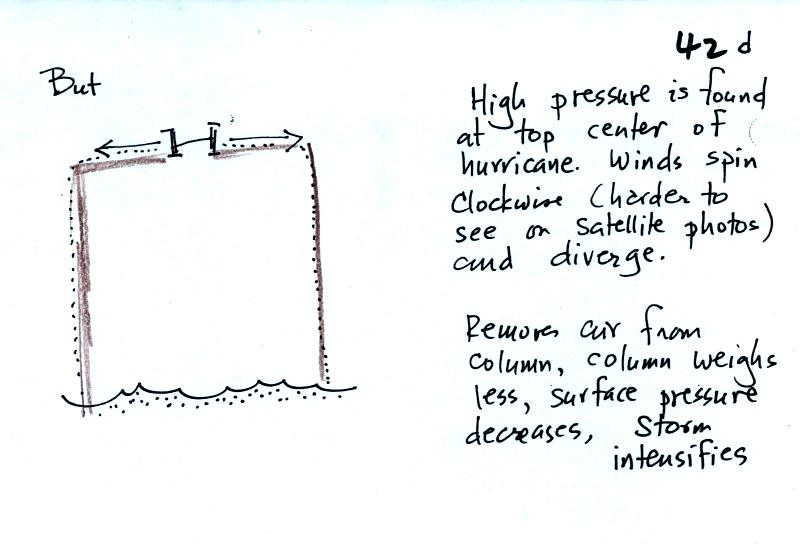 42d
But
High pressure is found
at top center of
hurricane. Winds spin
clockwise (harder to
see on satellite photos)
and diverge.
Removes air from
column, column weighs
less, surface pressure
decreases, Storm
intensifies